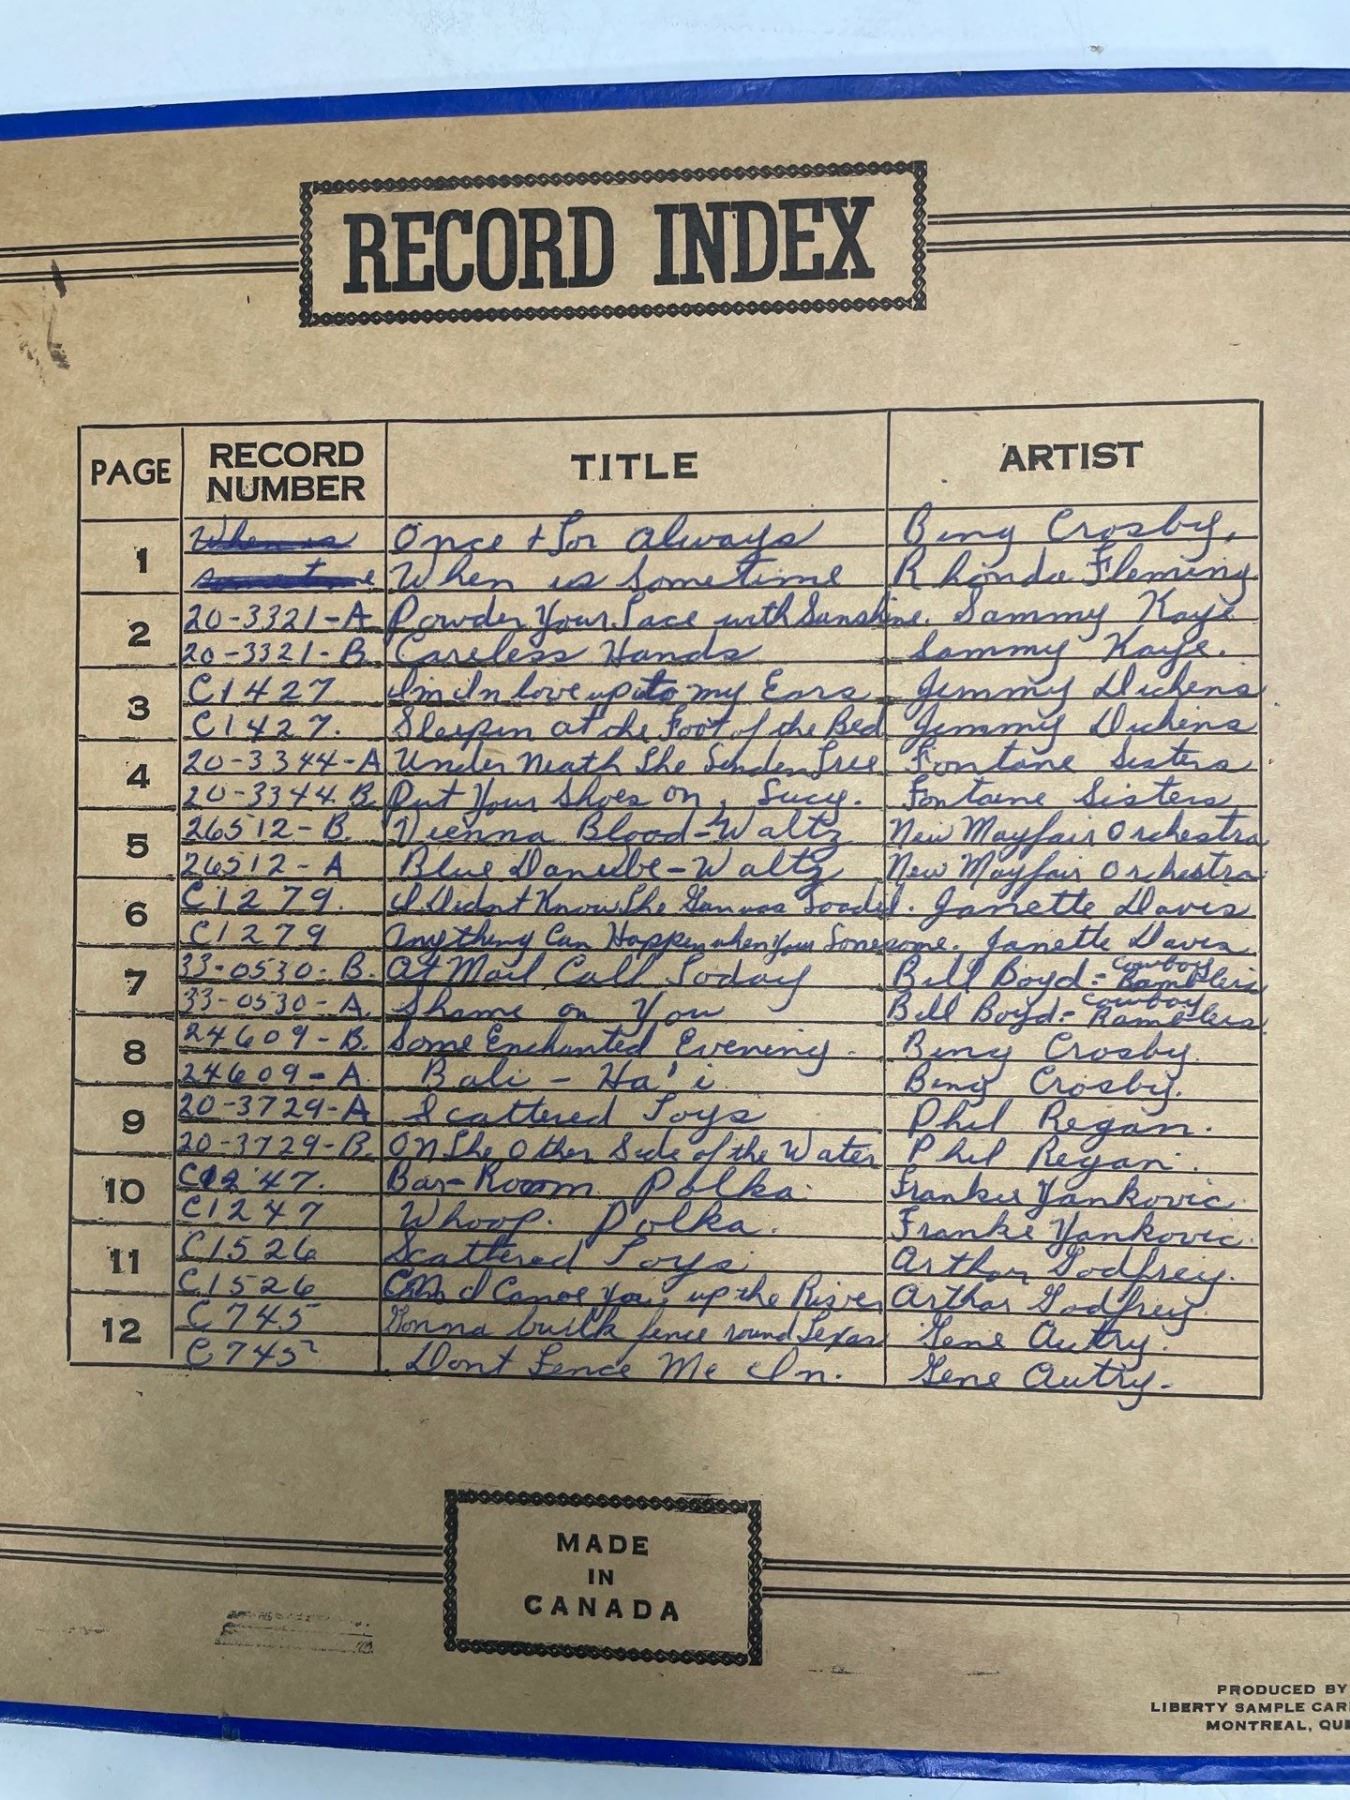 RECORD INDEX
PAGE RECORD NUMBER TITLE ARTIST
1 When is Once + For Always Bing Crosby,
sometime When is Sometime Rhonda Fleming
2 20-3321-A Powder Your Face with Sunshine. Sammy Kaye
20-3321-B Careless Hands Sammy Kaye.
3 C1427 I'm In love up to my Ears Jimmy Dickens
C1427. Sleepin at the Foot of the Bed Jimmy Dickens
4 20-3344-A Under Neath The Linden Tree Fontane Sisters
20-3344 B. Put Your Shoes on, Lucy. Fontane Sisters
5 26512-B. Vienna Blood-Waltz New Mayfair Orchestra
26512-A Blue Danube-Waltz New Mayfair Orchestra
6 C1279. I Didnt Know The Gun was Loaded. Janette Davis
C1279 Anything Can Happen when Your Lonesome. Janette Davis
7 33-0530-B. At Mail Call Today Bill Boyd - Cowboy Ramblers
33-0530-A. Shame on You Bill Boyd - Cowboy Ramblers
8 24609-B. Some Enchanted Evening. Bing Crosby
24609-A Bali - Ha'i Bing Crosby.
9 20-3729-A Scattered Toys Phil Regan.
20-3729-B. On The Other Side of the Water Phil Regan.
10 C1247. Bar-Room Polka. Frankie Yankovic
C1247 Whoop. Polka. Frankie Yankovic.
11 C1526 Scattered Toys Arthur Godfrey.
C1526 Can I Canoe You up the River Arthur Godfrey.
12 C745 Gonna build fence round Texas Gene Autry.
C745 Dont Fence Me In. Gene Autry.
MADE
IN
CANADA
PRODUCED BY
LIBERTY SAMPLE CAR
MONTREAL, QUE